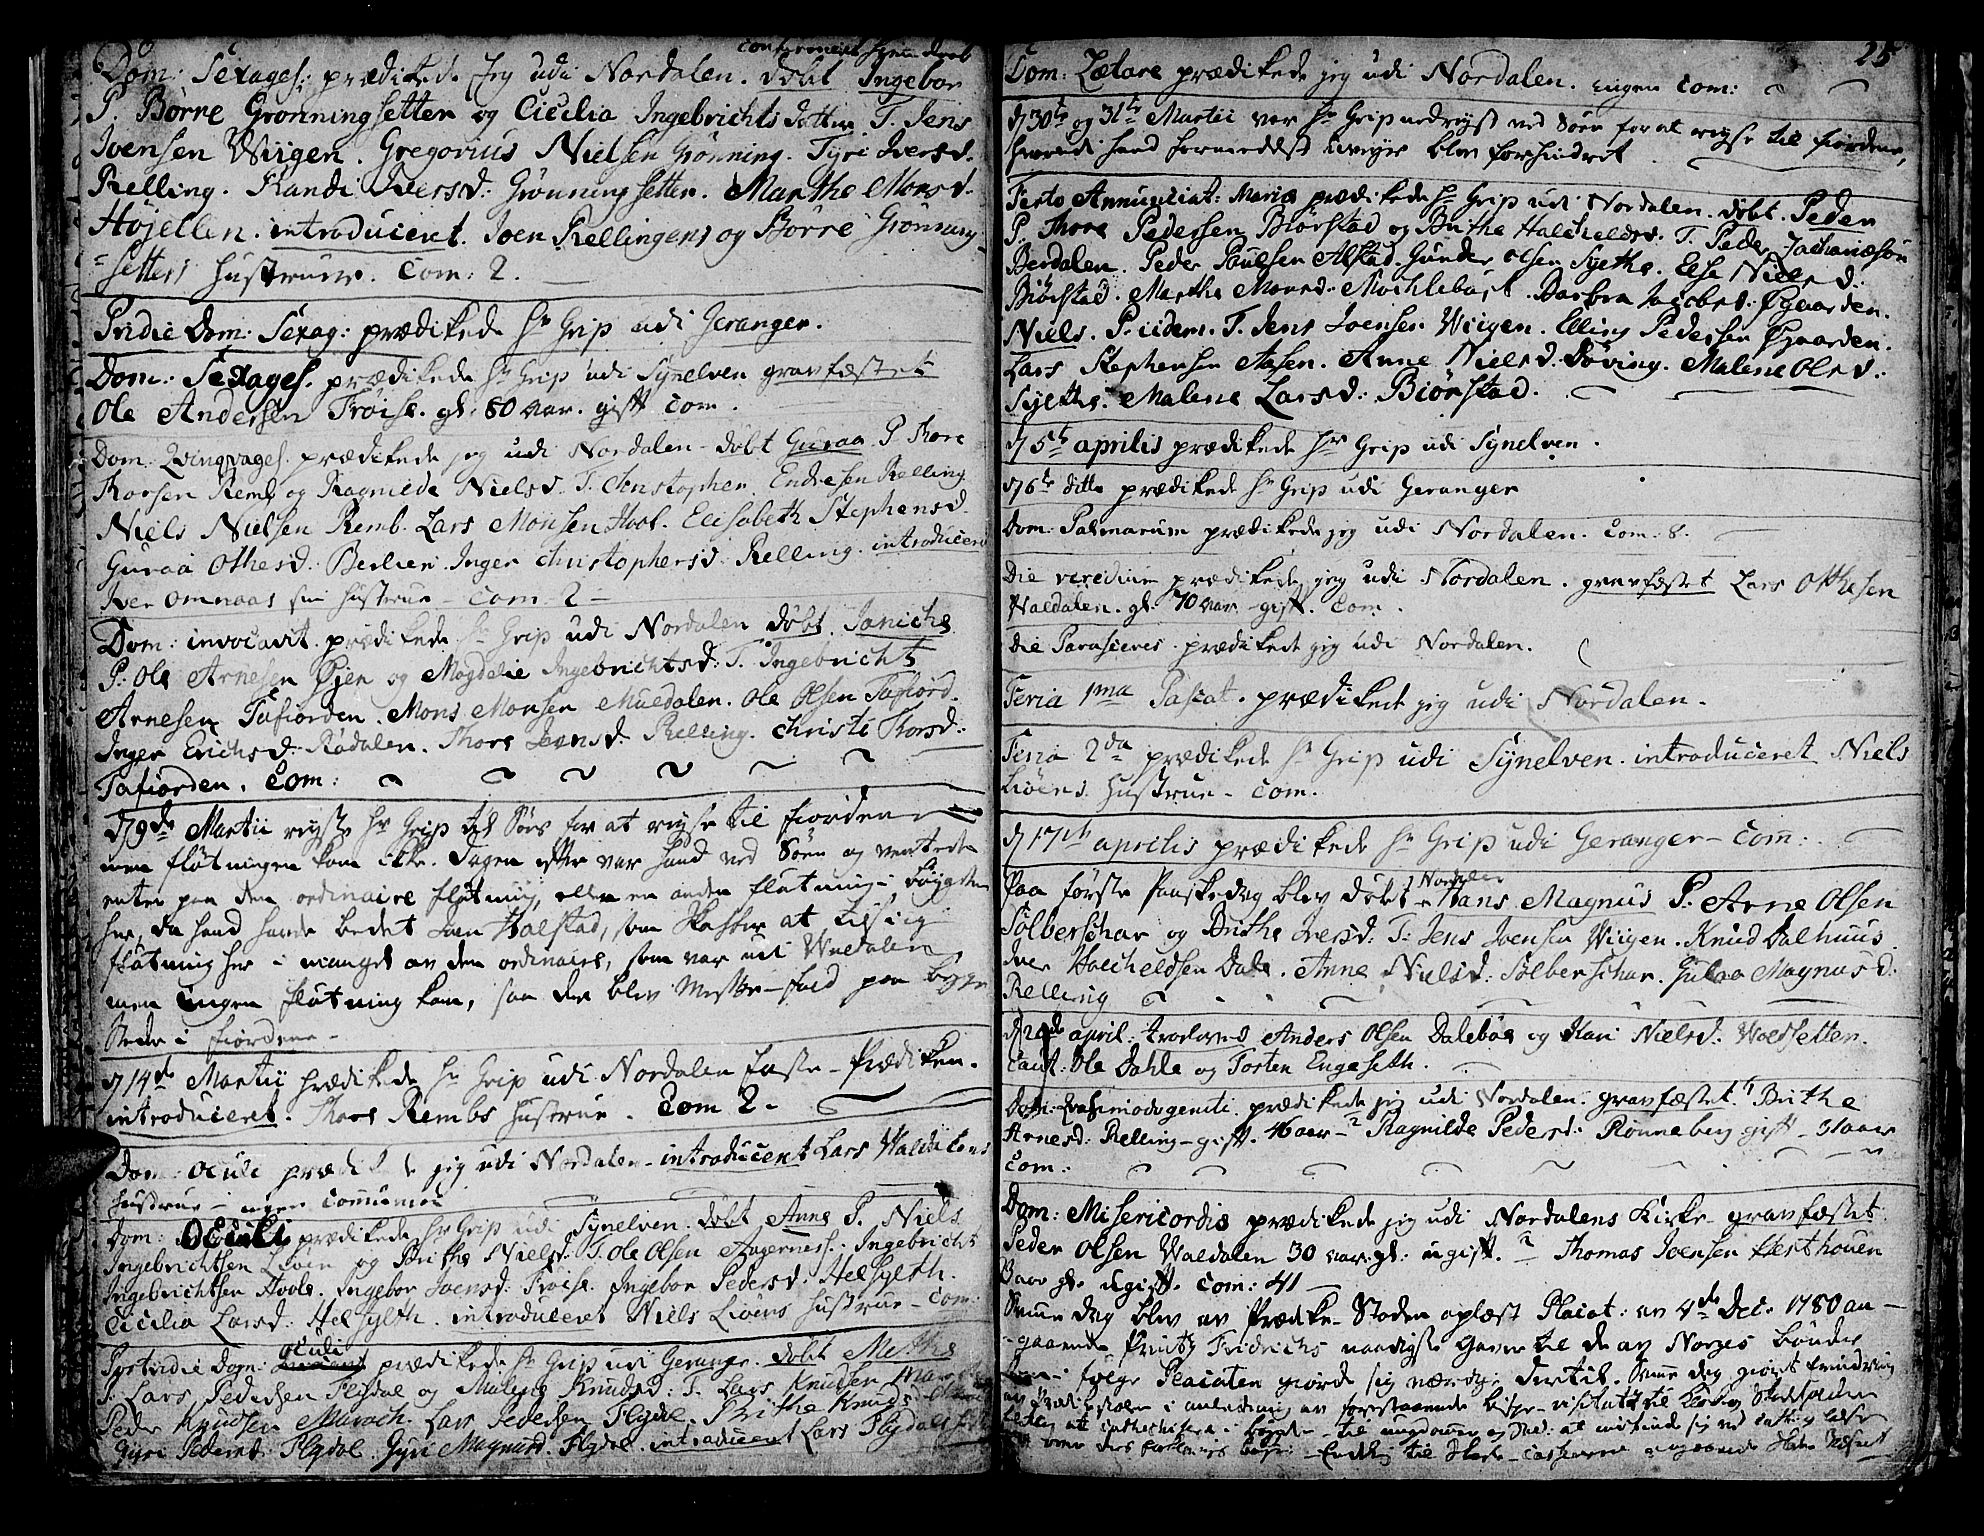 confirmeret hjem døbt
Dom: Sexages: prædikede jeg udi Nordalen. døbt Ingebor
P. Børre Grønningsetter og Cicilia Ingebrichts datter. T. Jens
Joensen Wiigen. Gregorius Nielsen Grønning. Tyri Iversd.
Relling. Randi Iversd: Grønningsetter. Marthe Monsd.
Høgellen. introduceret. Joen Rellingens og Børre Grønning-
=setters hustruer. Com: 2.
Pridie Dom: Sexag: prædikede Hr Grip udi Geranger.
Dom: Sexages. prædikede Hr Grip udi Synelven gravfæstet
Ole Andersen Frøise. gl. 80 aar. gift. Com.
Dom: Qvinqvages. prædikede jeg udi Nordalen - døbt Guraa P. Thore
Roersen Remb og Ragnilde Nielsd. T. Christopher Endresen Relling
Niels Nielsen Remb. Lars Monsen Hool. Elisabeth Stephensd.
Guraa Othesd: Berlien. Inger Christophersd. Relling. introduceret
Iver Omnaas sin hustrue - Com. 2 -
Dom: invocavit. prædikede Hr Grip udi Nordalen døbt. Janiche
P: Ole Arnesen Øjen og Magdelie Ingebrichtsd: T. Ingebricht
Arnesen Tafiorden. Mons Monsen Muldalen. Ole Olsen Tafiord.
Inger Erichsd: Rødalen. Thore Joensd. Relling. Christi Thorsd:
Tafiorden. Com:
d 9de Martii reyste Hr Grip til Søre for at reyse til fiordene
men fløtningen kom ikke. Dagen efter var hand ved Søre og ventede
enten paa den ordinaire fløtning, eller en anden fløtning i bøygden
her, da hand hafde bedet Joen Halstad, som skaffer at tilsige
fløtning her i mangel av den ordinaire, som var udi Muldalen
men ingen fløtning kom, saa der blev Messe-fald paa begge
Steder i fiordene -
d 14de Martii prædikede Hr Grip udi Nordalen faste-Prædiken.
introduceret. Thore Rembs hustrue. Com 2.
Dom: Oculi prædikede jeg udi Nordalen - introduceret Lars Waldalens
hustrue - ingen communion
Dom: Oculi prædikede Hr Grip udi Synelven. døbt Anne P. Niels
Ingebrichtsen Liøen og Brithe Nielsd. T. Ole Olsen Aagerness. Ingebricht
Ingebrichtsen Hoole. Ingebor Joensd: Frøise. Ingebor Pedersd: Helsylth.
Cicilia Larsd: Helsylth. introduceret Niels Liøens hustrue - Com:
Postridie Dom: oculi prædikede Hr Grip udi Geranger. døbt Methe
P. Lars Pedersen Flydal og Knudsd: T. Lars Knudsen Marach
Peder Knudsen Marach. Lars Pedersen Flydal. Brithe Knudsd.
Gyri Pedersd: Flydal. Gyri Magnusd. Flydal. introduceret Lars Flydals
25
Dom: Lætare prædikede jeg udi Nordalen. ingen Com:
d 30te og 31te Martii var Hr Grip nedreyst ved Søre for at reyse til fiordene,
hvorudi hand formedelst uveyer blev forhindret
Festo Annunciat: Mariæ prædikede Hr Grip udi Nordalen. døbt. Peder
P. Thore Pedersen Biørstad og Brithe Halcheldsd. T. Peder Zachariæsen
Berdalen. Peder Poulsen Alstad. Gunder Olsen Syethe. Else Nielsd.
Biørstad. Marthe Monsd. Mochlebust. Barbra Jacobsd: Øgaarden.
Niels. P. iidem. T. Jens Joensen Wiigen. Elling Pedersen Øgaarden.
Lars Stephensen Aasen. Anne Nielsd. Døving. Malene Olsd.
Syethe. Malene Larsd: Biørstad.
d 5te aprilis prædikede Hr Grip udi Synelven.
d 6te ditto prædikede Hr Grip udi Geranger
Dom: Palmarum prædikede jeg udi Nordalen. Com: 8.
Die viridium prædikede jeg udi Nordalen. gravfæstet Lars Othesen
Waldalen. gl. 70 aar - gift. Com.
die Parasceves. prædikede jeg udi Nordalen.
Feria 1ma Pascat. prædikede jeg udi Nordalen.
Feria 2da prædikede Hr Grip udi Synelven. introduceret Niels
Liøens hustrue - Com.
d 17de aprilis prædikede Hr Grip udi Geranger - Com:
Paa første Paaskedag blev døbt i Nordalen Hans Magnus P: Arne Olsen
Sølberschar og Brithe Iversd: T: Jens Joensen Wiigen. Knud Dalhuus.
Iver Halcheldsen Dale. Anne Nielsd: Sølberschar. Gulro Magnusd.
Relling
d 20de april: trolovet Anders Olsen Dalebøe og Kari Nielsd: Woldsetter.
Caut: Ole Dahle og Torsten Engeseth.
Dom: Qvasimodogeniti. prædikede jeg udi Nordalen. gravfæstet 1 Brithe
Arnesd: Relling - gift. 46 aar - 2 Ragnilde Pedersd: Rønneberg gift - aar
Com:
Dom: Misericordiæ prædikede jeg udi Nordalens Kirke - gravfæstet
Peder Olsen Waldalen 30 aar gl: ugift. 2 Thomas Joensen Hesthouen
aar gl. ugift. Com: 41 -
Samme dag blev av Prædike-Stolen oplæst Placat: av 4de Dec: 1780 an-
-gaaende Printz Fridrichs naadigste Gaver til de av Norges bønder
som i følge Placaten giorde sig værdig dertil. Samme dag giort erindring
av Prædikestolen i anledning av forestaaende Bispe-visitatz til
at catechisere. til ungdommen og
Endelig til